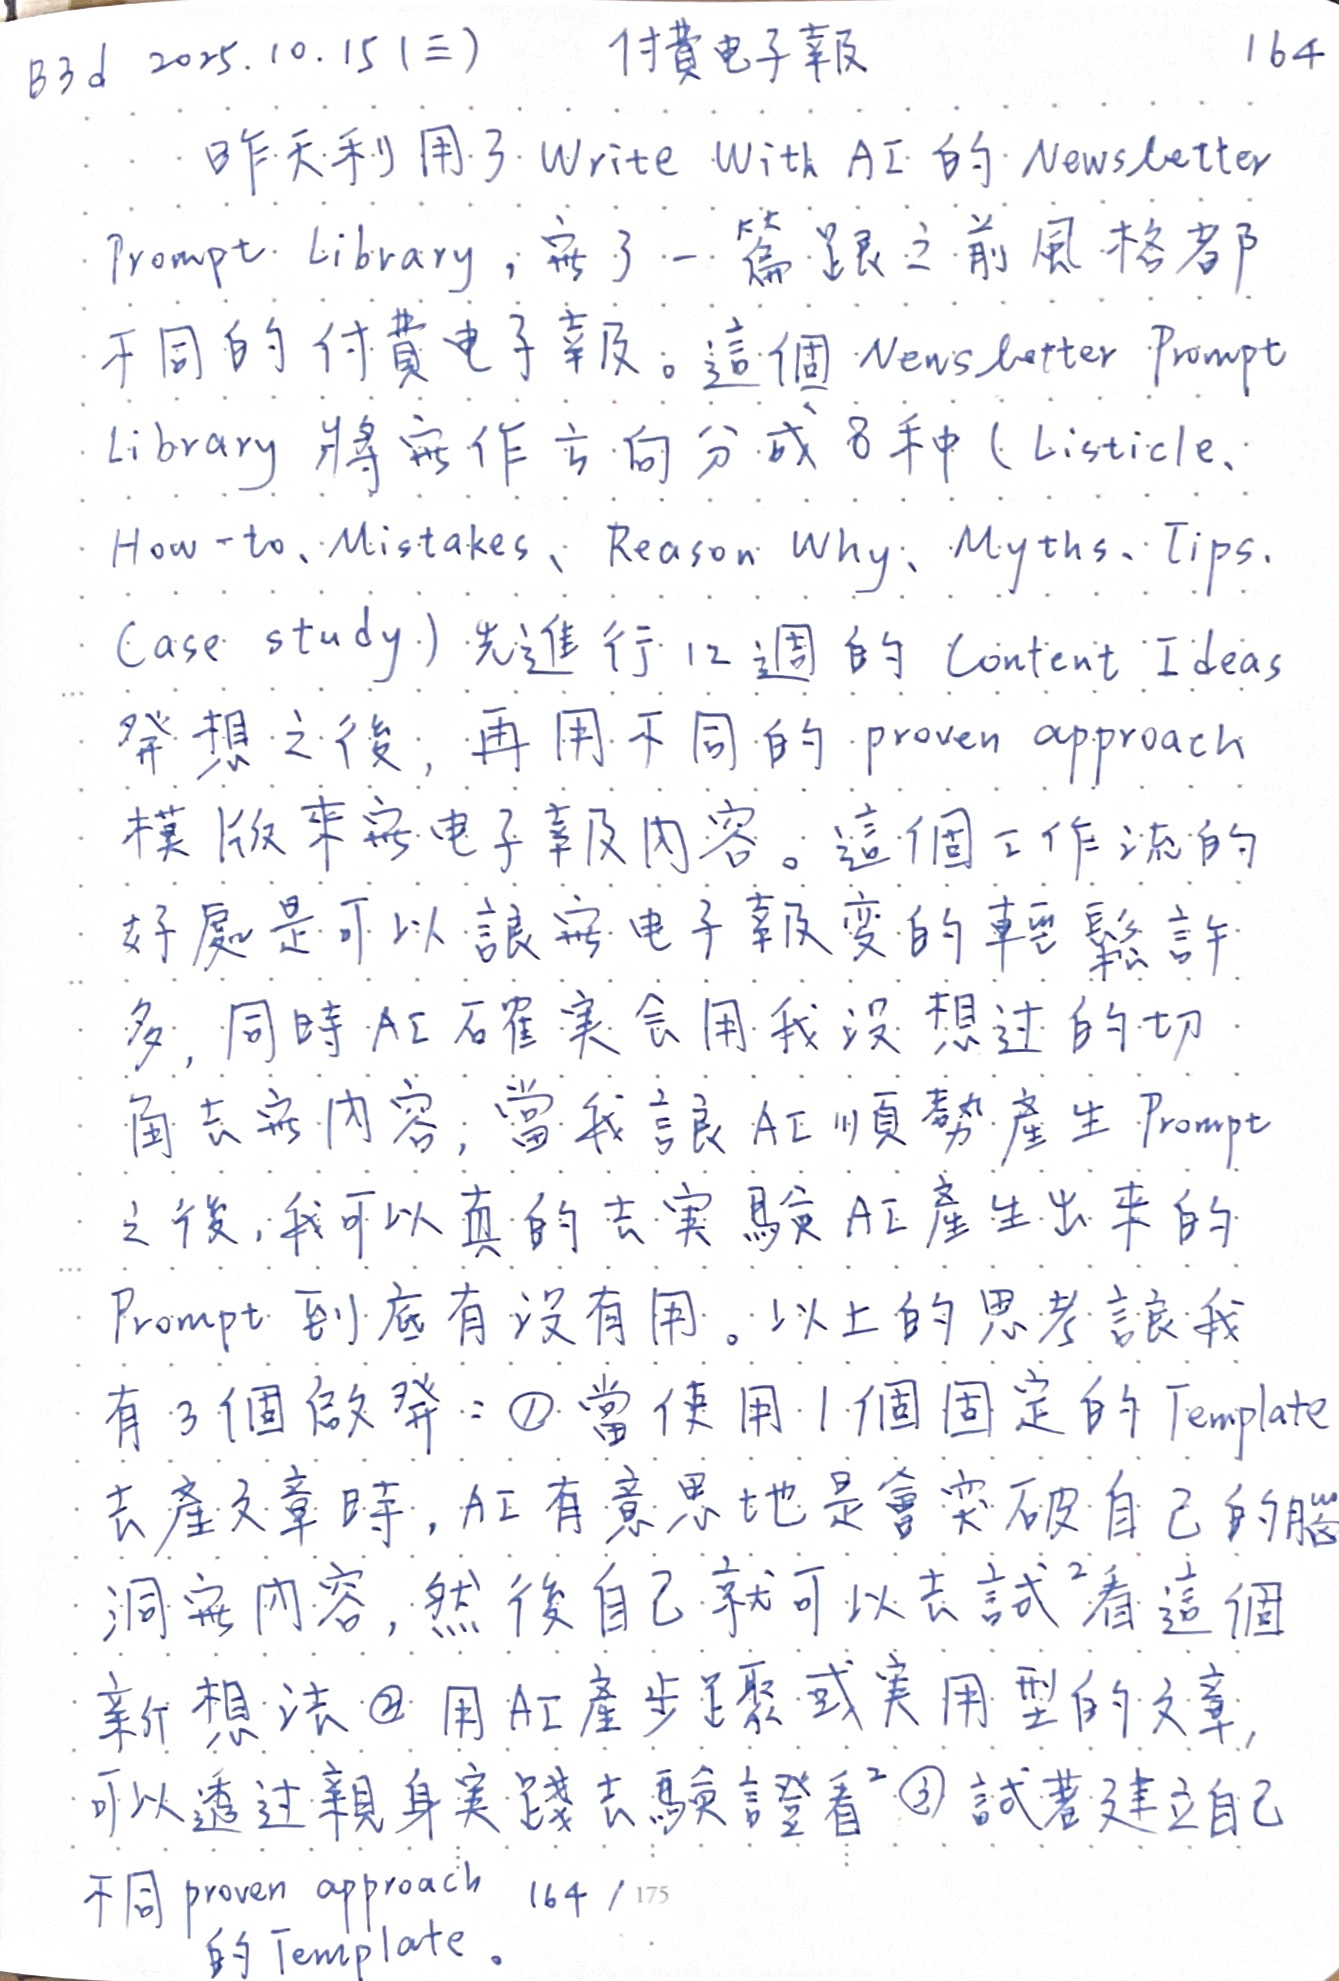 B3d 2025.10.15(三) 付費电子報 164
昨天利用了 Write With AI 的 Newsletter
Prompt Library,寫了一篇跟之前風格都
不同的付費电子報。這個 Newsletter Prompt
Library 將寫作方向分成8种(Listicle、
How-to、Mistakes、Reason Why、Myths、Tips.
Case study)先進行12週的 Content Ideas
発想之後,再用不同的 proven approach
模版來寫电子報內容。這個工作流的
好處是可以讓寫电子報变的輕鬆許
多,同時AI確実会用我沒想过的切
角去寫內容,當我讓AI順勢產生 Prompt
之後,我可以真的去実驗AI產生出來的
Prompt 到底有沒有用。以上的思考讓我
有3個啟発:①當使用1個固定的Template
去產文章時,AI有意思地是會突破自己的腦
洞寫內容,然後自己就可以去試²看這個
新想法②用AI產步驟或実用型的文章,
可以透过親身実踐去驗證看²③試著建立自己
不同 proven approach 164/175
的Template。